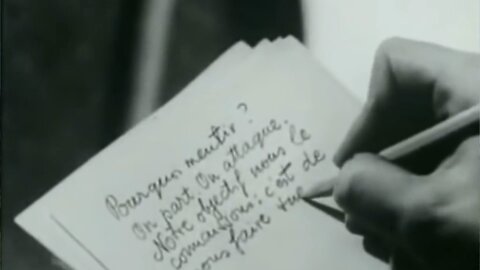 Pourquoi mentir?
On part. On attaque.
Notre objectif nous le
connaissons: c'est de
nous faire tue